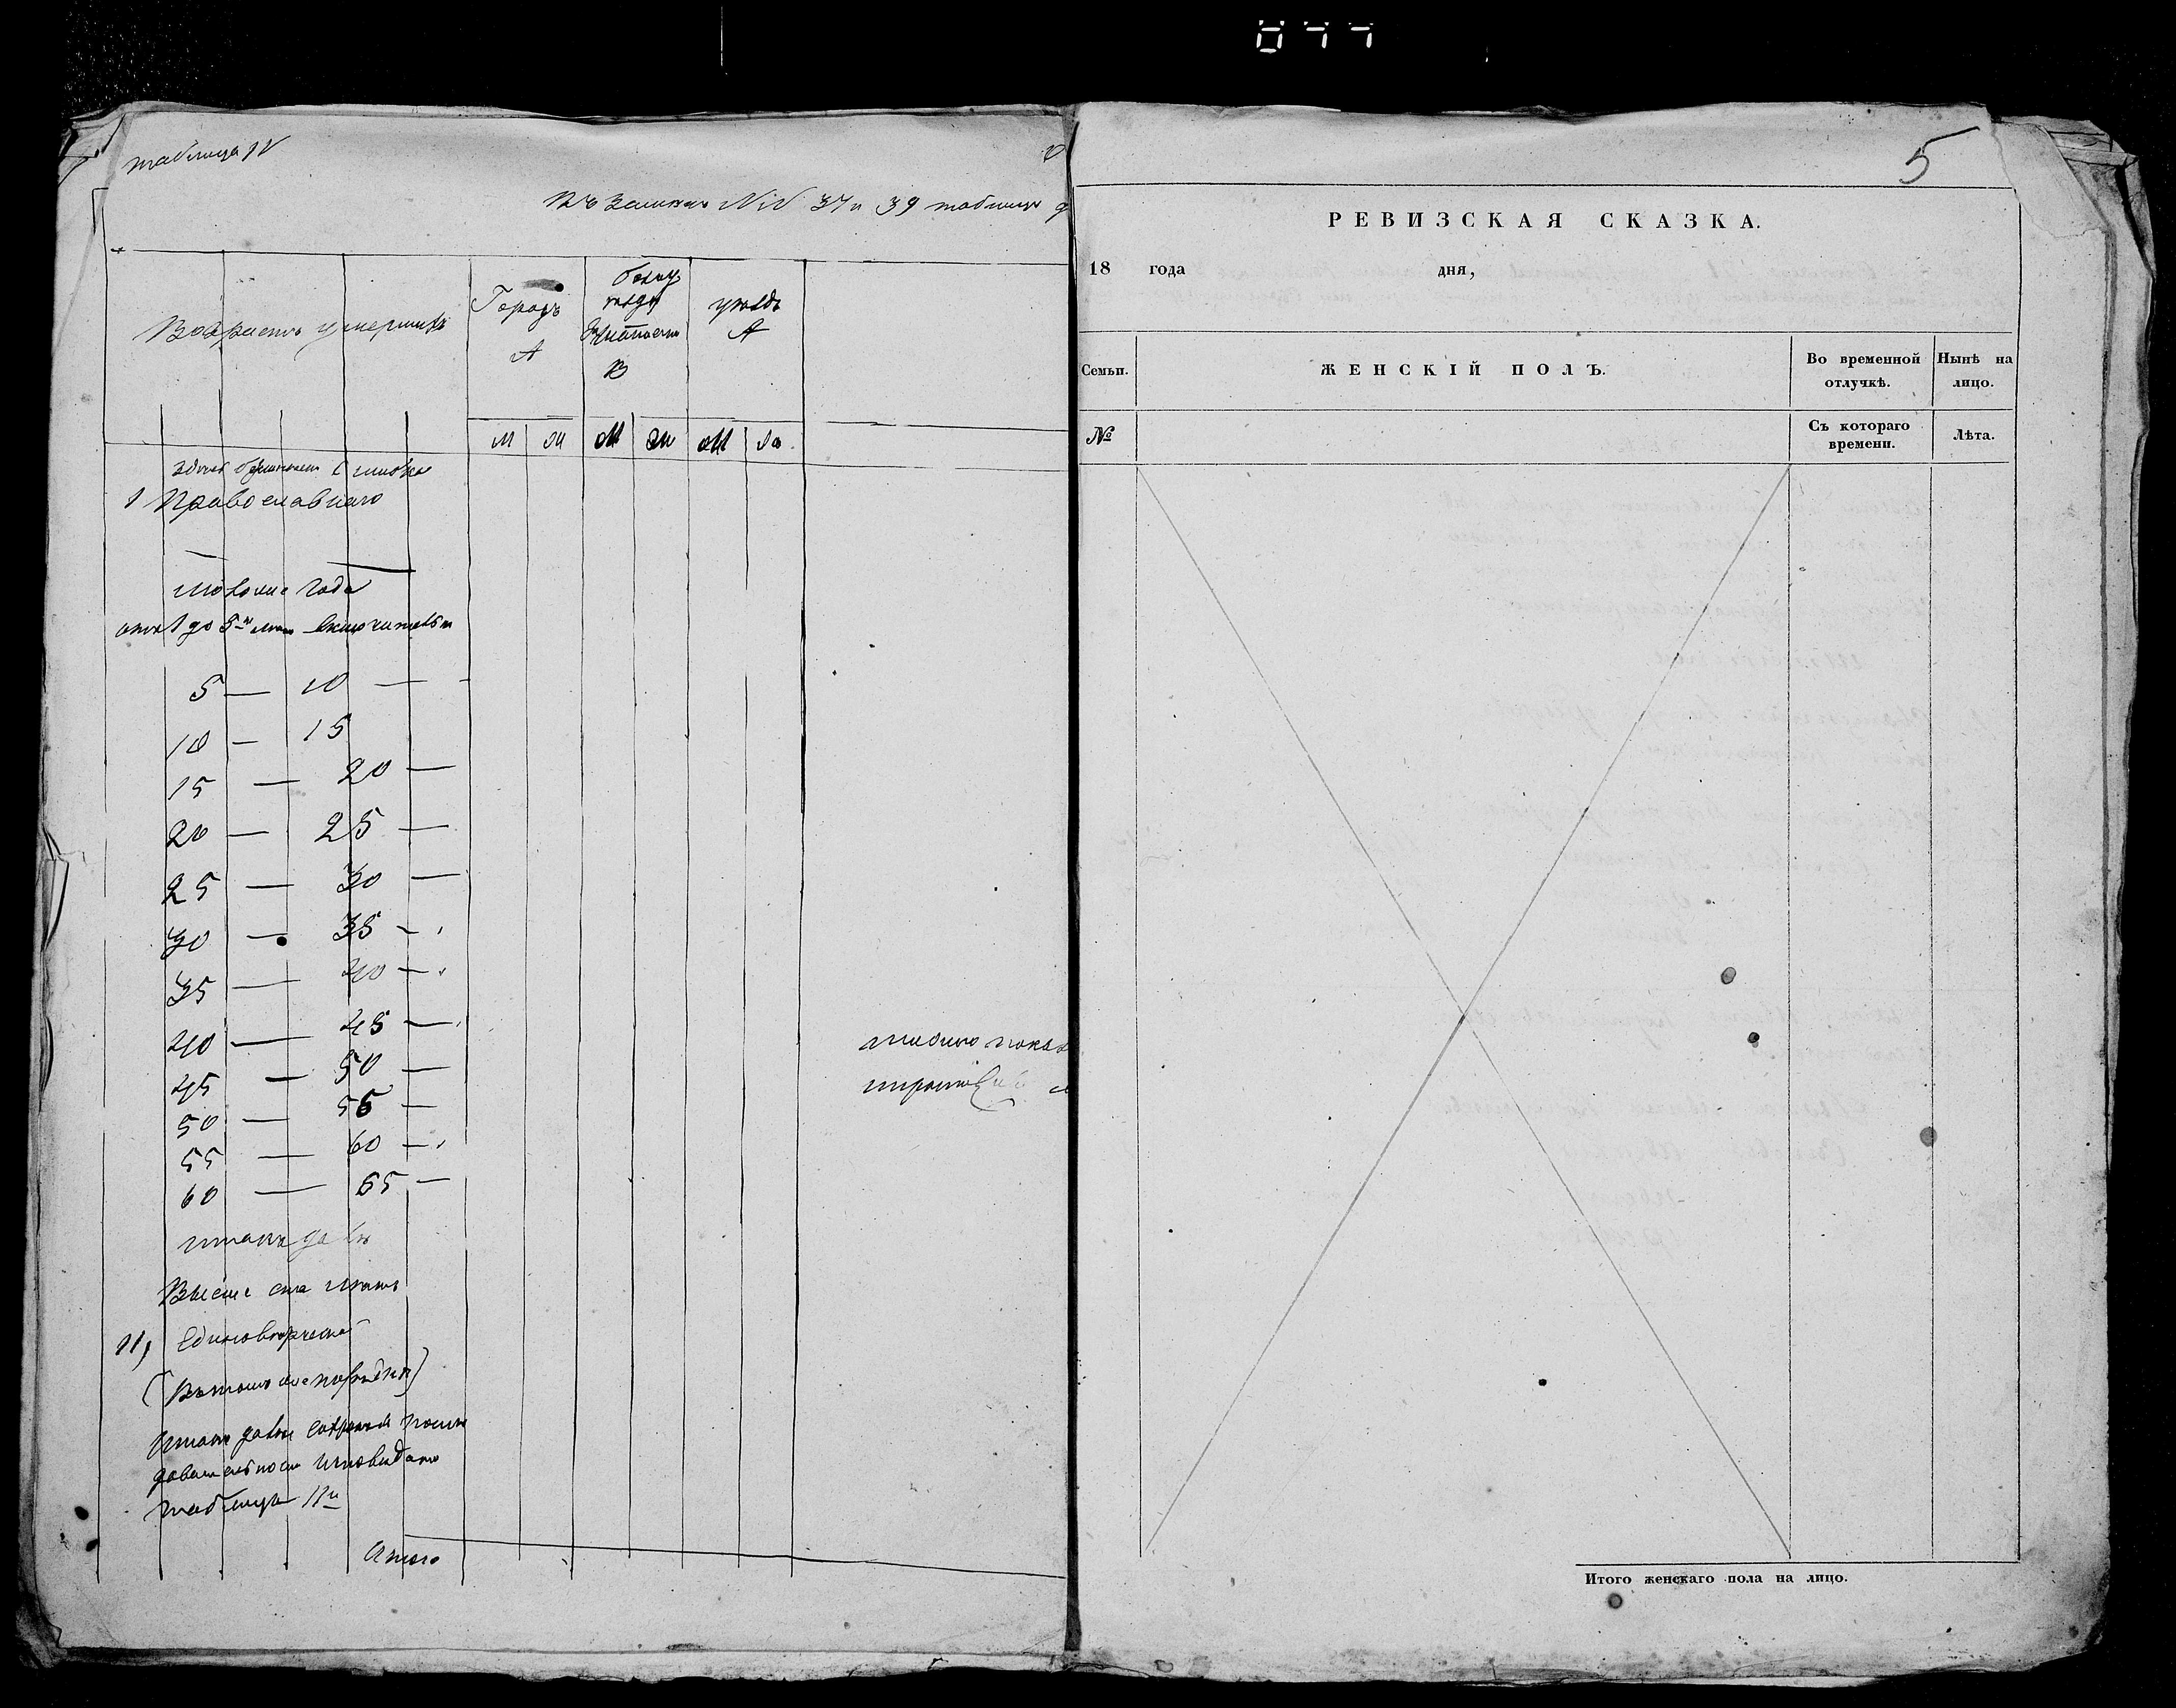 таблица IV
Къ № № 37 и 39 таблицы
Возрастъ умершихъ
Городъ
А
Безъ
уѣзда
В
уѣздъ
А
М
Ж
М
Ж
М
Ж
1 Православнаго
Моложе года
отъ 1 до 5 лѣтъ включительно
5 — 10 —
10 — 15
15 — 20 —
20 — 25 —
25 — 30 —
30 — 35 —
35 — 40 —
40 — 45 —
45 — 50 —
50 — 55 —
55 — 60 —
60 — 65 —
и такъ далѣе
Выше ста лѣтъ
II, Единовѣрческаго
(Въ томъ же порядкѣ)
и такъ далѣе
таблицы II й
Итого
5
РЕВИЗСКАЯ СКАЗКА.
18 года дня,
Семьи.
ЖЕНСКІЙ ПОЛЪ.
Во временной
отлучкѣ.
Нынѣ на
лицо.
№
Съ котораго
времени.
Лѣта.
Итого женскаго пола на лицо.